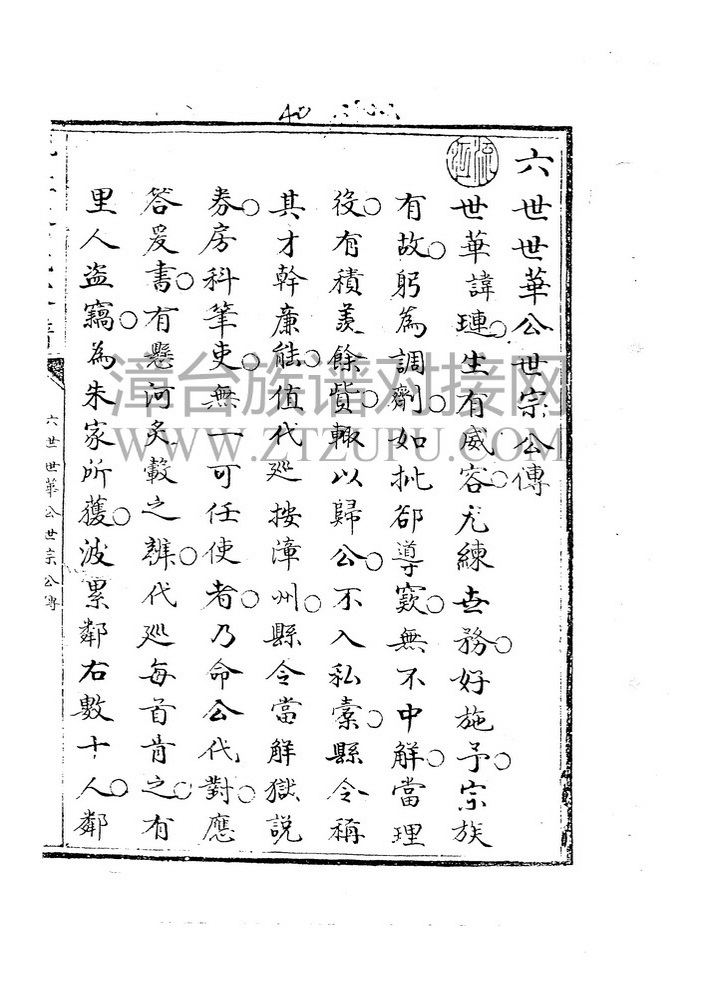 六世世華公世宗公傳
世華諱璉生有威容尤練世務○好施予○宗族
有故○躬為調劑○如批郤導窾○無不中解○當理
役○有積羡餘貲○輒以歸公○不入私橐○縣令稱
其才幹廉能○值代巡按漳州○縣令當解獄說
券○房科筆吏○無一可任使者○乃命公代對○應
答爰書○有懸河炙轂之辨○代巡每首肯之○有
里人盜竊○為朱家所獲○波累鄰右數十人○鄰
六世世華公世宗公傳
漳台族谱对接网
WWW.ZTZUPU.COM